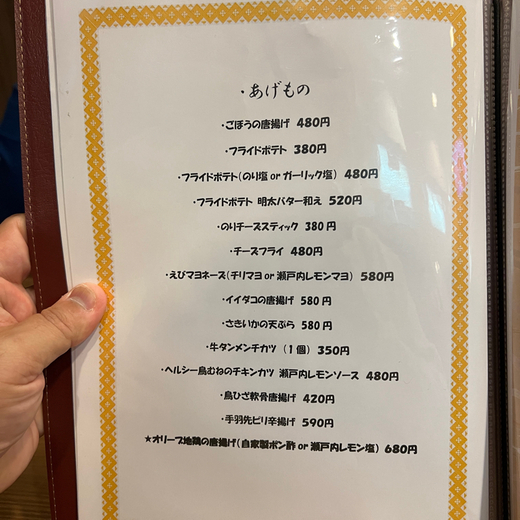 ・あげもの
・ごぼうの唐揚げ 480円
・フライドポテト 380円
・フライドポテト(のり塩 or ガーリック塩) 480円
・フライドポテト 明太バター和え 520円
・のりチーズスティック 380円
・チーズフライ 480円
・えびマヨネーズ(チリマヨ or 瀬戸内レモンマヨ) 580円
・イイダコの唐揚げ 580円
・さきいかの天ぷら 580円
・牛タンメンチカツ (1個) 350円
・ヘルシー鳥むねのチキンカツ 瀬戸内レモンソース 480円
・鳥ひざ軟骨唐揚げ 420円
・手羽先ピリ辛揚げ 590円
★オリーブ地鶏の唐揚げ(自家製ポン酢 or 瀬戸内レモン塩) 680円